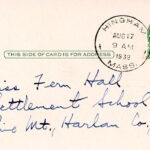 HINGHAM
AUG 17
9 AM
1938
MASS.
THIS SIDE OF CARD IS FOR ADDRESS
iss Fern Hall
ettlement School
ine Mt., Harlan Co.,